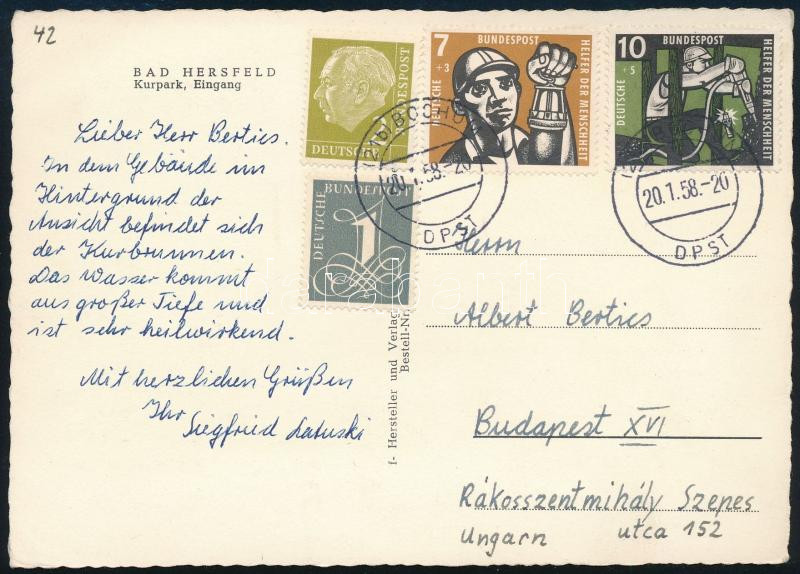 42
BAD HERSFELD
Kurpark, Eingang
Lieber Herr Berties.
In dem Gebäude im
Hintergrund der
Ansicht befindet sich
der Kurbrunnen.
Das Wasser kommt
aus großer Tiefe und
ist sehr heilwirkend.
Mit herzlichen Grüßen
Ihr
Siegfried Latuski
DEUTSCHE BUNDESPOST
DEUTSCHE BUNDESPOST
1
7
+3
BUNDESPOST
DEUTSCHE
HELFER DER MENSCHHEIT
10
+5
BUNDESPOST
DEUTSCHE
HELFER DER MENSCHHEIT
BOCHU
20.1.58.-20
DPST
20.1.58.-20
DPST
f- Hersteller und Verlag
Bestell-Nr.
Herrn
Albert Berties
Budapest XVI
Rákosszentmihály Szepes
Ungarn utca 152